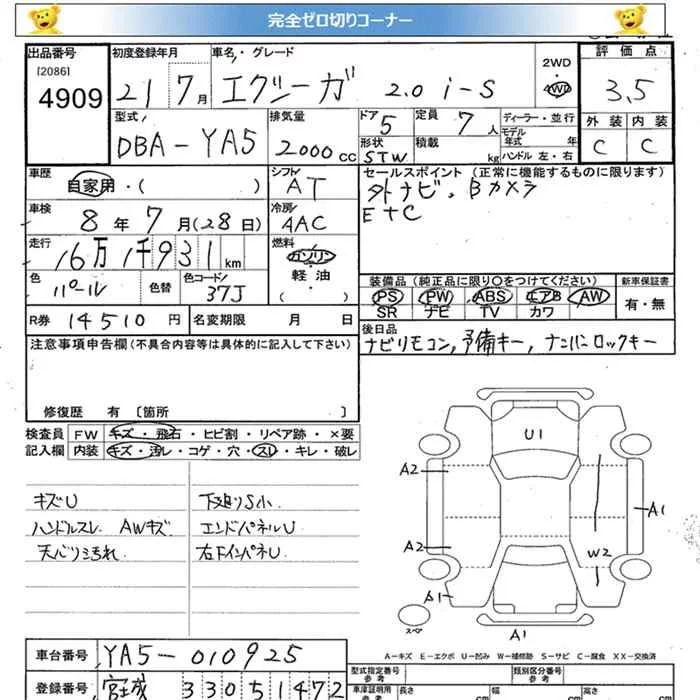 完全ゼロ切りコーナー
出品番号
[2086]
4909
初度登録年月
21 7月
車名・グレード
エクシーガ 2.0 i-S
2WD
4WD
評価点
3.5
外装 内装
C C
型式
DBA-YA5
排気量
2000 cc
ドア
5
形状
STW
定員
7人
積載
kg
ディーラー・並行
モデル
年式 年
ハンドル 左・右
車歴
自家用・( )
シフト
AT
車検
8年7月(28日)
冷房
AAC
走行
16万1千931km
燃料
ガソリン
軽・油
( )
色
パール
色替
色コード
37J
セールスポイント (正常に機能するものに限ります)
外ナビ、Bカメラ
ETC
装備品(純正品に限り〇をつけてください)
PS PW ABS エアB AW
SR ナビ TV カワ
新車保証書
有・無
R券 14510円
名変期限 月 日
後日品
ナビリモコン,予備キー,ナンバーロックキー
注意事項申告欄(不具合内容等は具体的に記入して下さい)
修復歴 有 [箇所 ]
検査員
記入欄
FW キズ・飛石・ヒビ割・リペア跡・×要
内装 キズ・汚レ・コゲ・穴・スレ・キレ・破レ
キズU
ハンドルスレ AWキズ
天バリ汚れ
下廻りS小
エンドパネルU
右下インパネU
U1
A2
A1
A2
W2
A1
スペア
A1
A-キズ E-エクボ U-凹み W-補修跡 S-サビ C-腐食 XX-交換済
車台番号 YA5-010925
登録番号 宮城 330 5 1472
型式指定番号
参考
類別区分番号
参考
車庫証明用
参考
長さ
cm
幅
cm
高さ
cm